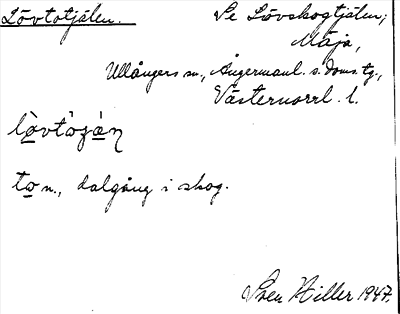 Lövtotjälen.
Se Lövskogtjälen,
Mäja,
Ullångers sn., Ångermanl. s. doms. tg.,
Västernorrl. l.
to n., dalgång i skog.
Sven Hiller 1947.